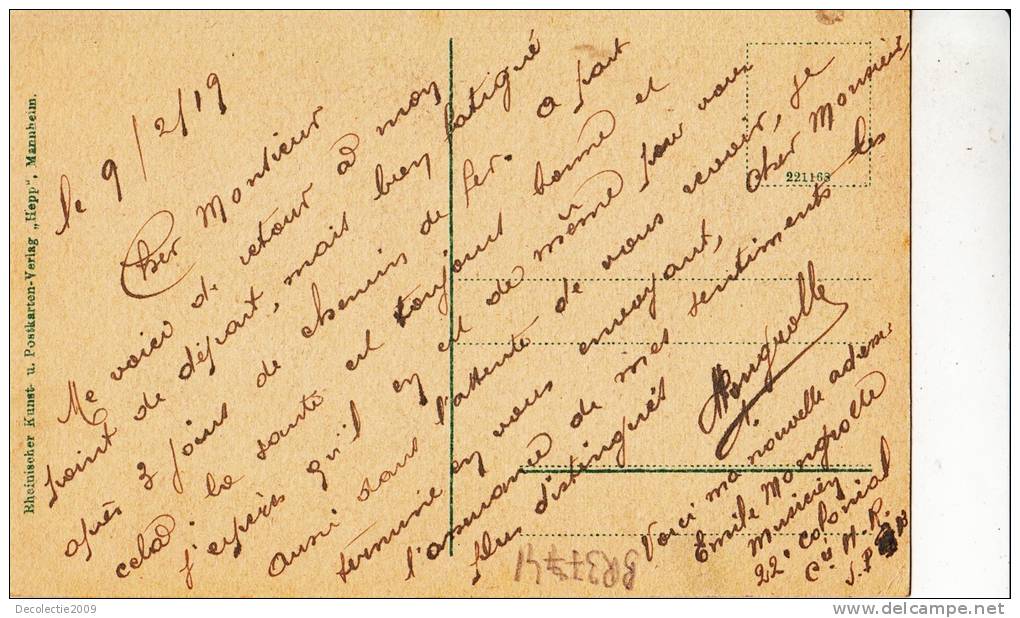 le 9/2/19
Cher Monsieur
Me voici de retour à mon
point de départ, mais bien fatigué
après 3 jours de chemin de fer. a part
cela la santé est toujours bonne et
j'espère qu'il en est de même pour vous
aussi dans l'attente de vous revoir, je
termine en vous envoyant, cher Monsieur,
l'assurance de mes sentiments les
plus distingués
Voici ma nouvelle adresse
Emile
Musicien
22e Colonial
Cie H. R.
S. P.
BR37741
221168
Rheinischer Kunst- u. Postkarten-Verlag „Hepp“, Mannheim.
Delcampe.net
Decolectie2009